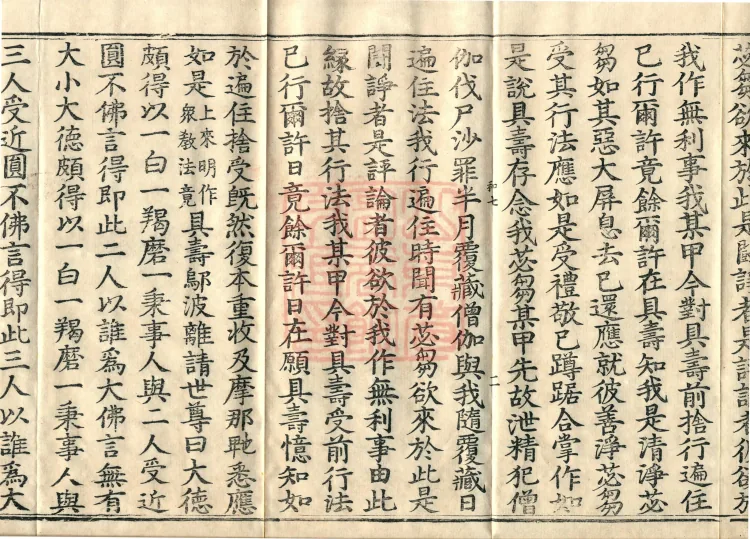 苾芻欲來於此是鬪諍者是評論者彼欲於
我作無利事我某甲今對具壽前捨行遍住
已行爾許竟餘爾許在具壽知我是清淨苾
芻如其惡大屏息去已還應就彼善淨苾芻
受其行法應如是受禮敬已蹲踞合掌作如
是說具壽存念我苾芻某甲先故泄精犯僧
和七 二
伽伐尸沙罪半月覆藏僧伽與我隨覆藏日
遍住法我行遍住時聞有苾芻欲來於此是
鬪諍者是評論者彼欲於我作無利事由此
緣故捨其行法我某甲今對具壽受前行法
已行爾許日竟餘爾許日在願具壽憶知如
於遍住捨受旣然復本重收及摩那悉應
如是上來明作眾教法竟具壽鄔波離請世尊曰大德
頗得以一白一羯磨一秉事人與二人受近
圓不佛言得即此二人以誰爲大佛言無有
大小大德頗得以一白一羯磨一秉事人與
三人受近圓不佛言得即此三人以誰爲大